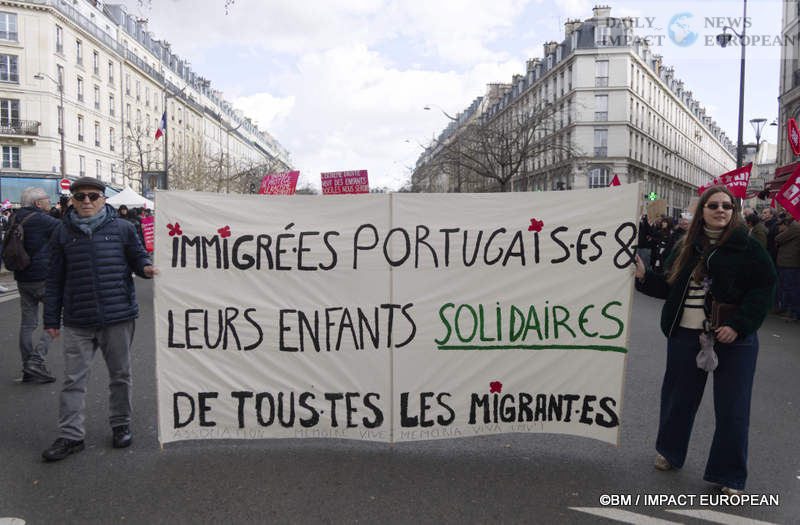 DAILY NEWS
IMPACT EUROPEAN
IMMIGRÉ·E·S PORTUGAIS·ES &
LEURS ENFANTS SOLIDAIRES
DE TOUS·TES LES MIGRANT·ES
ASSOCIATION MÉMOIRE VIVE MEMÓRIA VIVA
©BM / IMPACT EUROPEAN